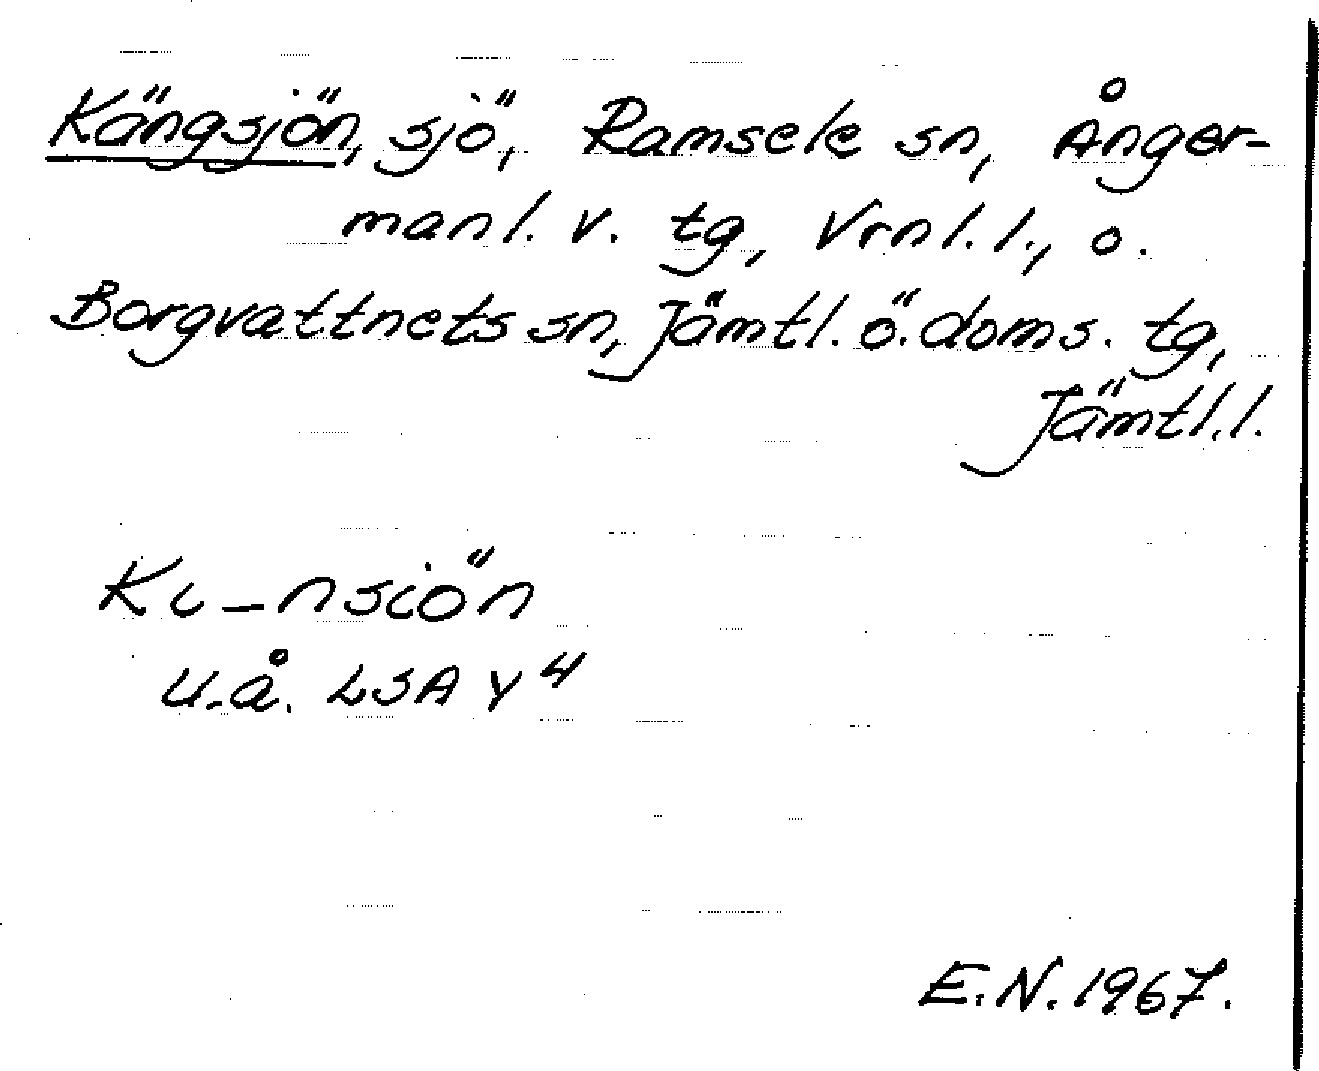 Kängsjön, sjö, Ramsele sn, Ånger-
manl. v. tg, Vrnl. l., o.
Borgvattnets sn, Jämtl. ö. doms. tg,
Jämtl. l.
Kι_nsiön
u.å. LSA Y 4
E.N. 1967.